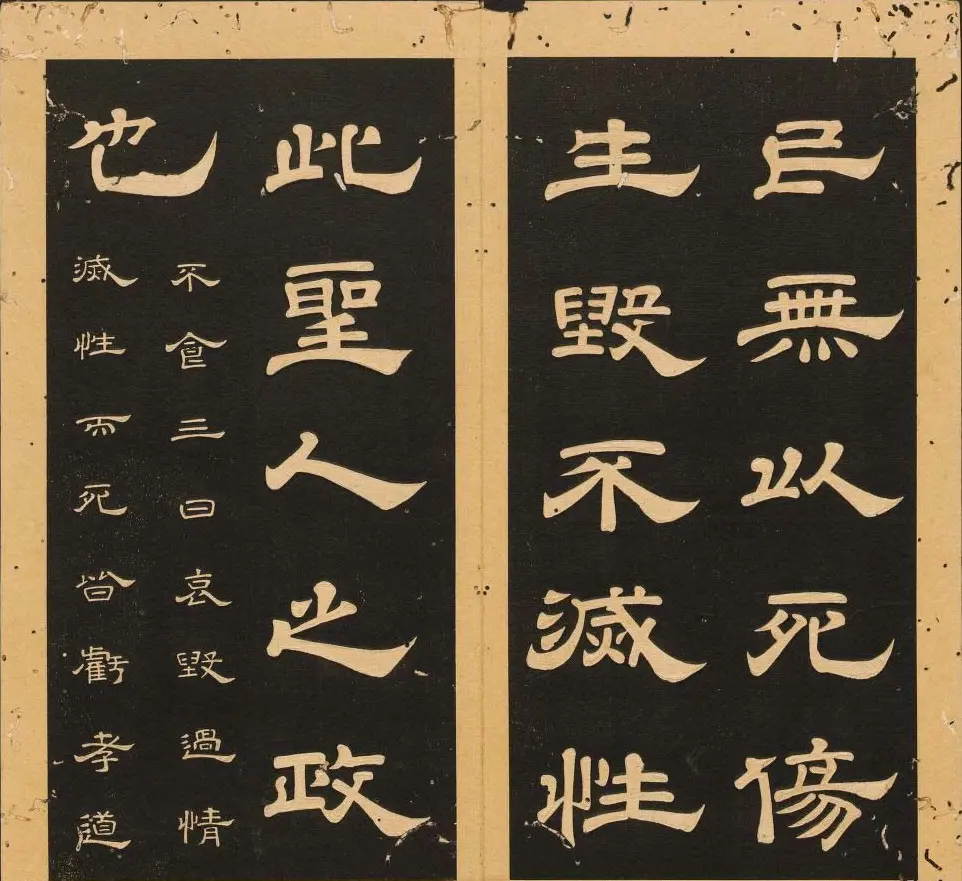 民無以死傷
生毀不滅性
此聖人之政
也
不食三日哀毀過情
滅性而死皆虧孝道